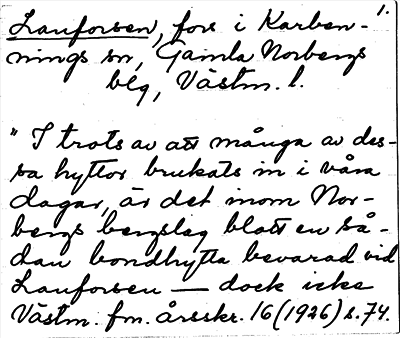 1.
Lanforsen, fors i Karben-
nings sn, Gamla Norbergs
blg, Västm. l.
" I trots av att många av des-
sa hyttor brukats in i våra
dagar, är det inom Nor-
bergs bergslag blott en så-
dan bondhytta bevarad vid
Lanforsen — dock icke
Västm. fm. årsskr. 16 (1926) s. 74.